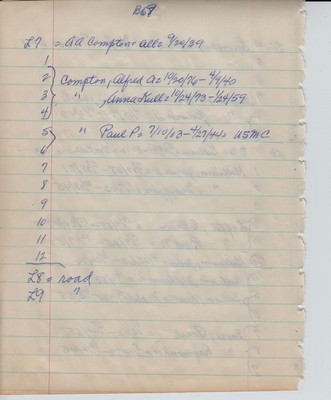 B69
L7 = AA Compton = all = 9/29/39
1
2 Compton, Alfred A = 10/20/76 - 4/9/40
3 " , Anna Kull = 10/24/73 - 1/24/59
4
5 " Paul P = 7/10/13 - 4/27/44 = USMC
6
7
8
9
10
11
12
L8 = road
L9 "